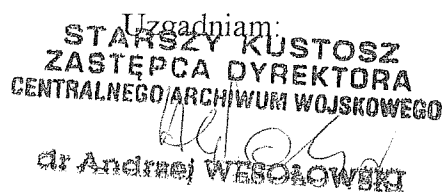 Uzgadniam:
STARSZY KUSTOSZ
ZASTĘPCA DYREKTORA
CENTRALNEGO ARCHIWUM WOJSKOWEGO
dr Andrzej WESOŁOWSKI